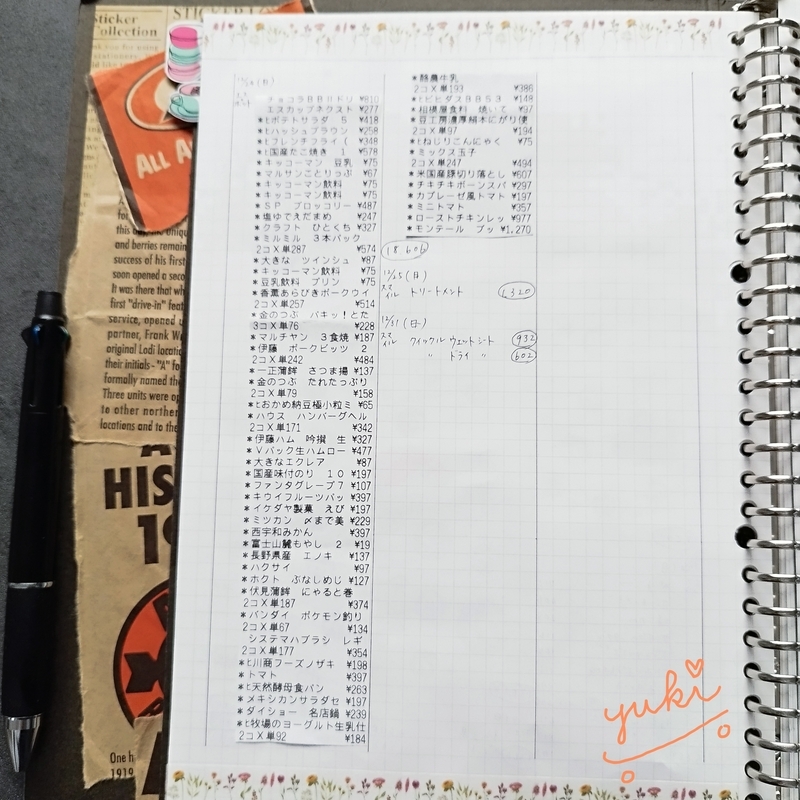 Sticker
Collection
STICKER
ALL A
and berries remain
success of his first
soon opened a seco
It was there that wh
first "drive-in" feat
service, opened u
partner, Frank W
original Lodi locati
their initials- "A" fo
formally named the
Three units were op
to other norther
locations and to the
HIS
19
One h
1919
チョコラBBⅡドリ ¥810
エスカップネクスト ¥277
*ヒポテトサラダ 5 ¥418
*ヒハッシュブラウン ¥258
*ヒフレンチフライ( ¥348
*ヒ国産たこ焼き 1 ¥578
*キッコーマン 豆乳 ¥75
*マルサンことりっぷ ¥67
*キッコーマン飲料 ¥75
*キッコーマン飲料 ¥75
*SP ブロッコリー ¥487
*塩ゆでえだまめ ¥247
*クラフト ひとくち ¥327
*ミルミル 3本パック
2コX単287 ¥574
*大きな ツインシュ ¥87
*キッコーマン飲料 ¥75
*豆乳飲料 プリン ¥75
*香薫あらびきポークウイ
2コX単257 ¥514
*金のつぶ パキッ!とた
3コX単76 ¥228
*マルチャン 3食焼 ¥187
*伊藤 ポークビッツ 2
2コX単242 ¥484
*一正蒲鉾 さつま揚 ¥137
*金のつぶ たれたっぷり
2コX単79 ¥158
*ヒおかめ納豆極小粒ミ ¥65
*ハウス ハンバーグヘル
2コX単171 ¥342
*伊藤ハム 吟撰 生 ¥327
*Vパック生ハムロー ¥477
*大きなエクレア ¥87
*国産味付のり 10 ¥197
*ファンタグレープ7 ¥107
*キウイフルーツパッ ¥397
*イケダヤ製菓 えび ¥197
*ミツカン 〆まで美 ¥229
*西宇和みかん ¥397
*富士山麓もやし 2 ¥19
*長野県産 エノキ ¥137
*ハクサイ ¥97
*ホクト ぶなしめじ ¥127
*伏見蒲鉾 にゃると巻
2コX単187 ¥374
*バンダイ ポケモン釣り
2コX単67 ¥134
システマハブラシ レギ
2コX単177 ¥354
*ヒ川商フーズノザキ ¥198
*トマト ¥397
*ヒ天然酵母食パン ¥263
*メキシカンサラダセ ¥197
*ダイショー 名店鍋 ¥239
*ヒ牧場のヨーグルト生乳仕
2コX単92 ¥184
*酪農牛乳
2コX単193 ¥386
*ヒビヒダスBB53 ¥148
*相模屋食料 焼いて ¥97
*豆工房濃厚絹本にがり使
2コX単97 ¥194
*ヒねじりこんにゃく ¥75
*ミックス玉子
2コX単247 ¥494
*米国産豚切り落とし ¥607
*チキチキボーンスパ ¥297
*カプレーゼ風トマト ¥197
*ミニトマト ¥357
*ローストチキンレッ ¥977
*モンテール ブッ ¥1,270
18.606
12/25(日)
スマイル トリートメント 1,320
12/31(日)
スマイル クイックル ウェットシート 932
〃 ドライ 〃 602
yuki